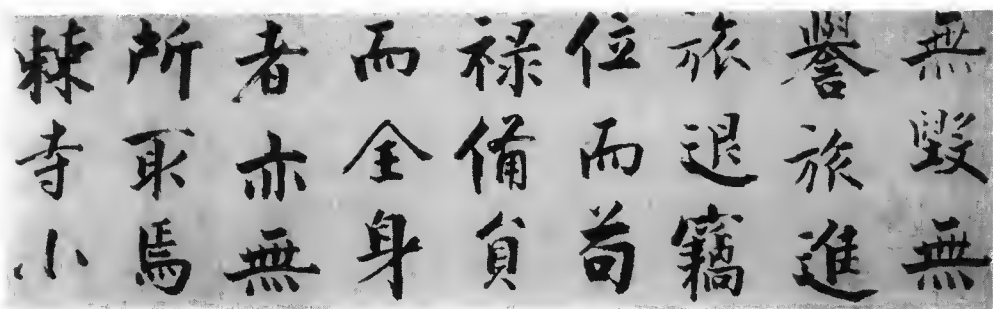 無毀無
譽旅進
旅退竊
位而苟
禄備貟
而全身
者亦無
所取焉
棘寺小